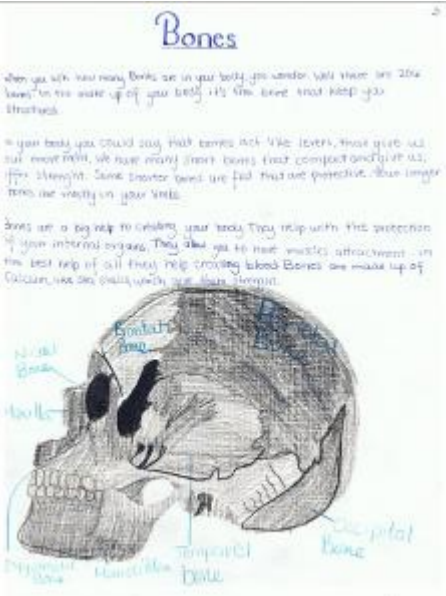 Bones
When you with how many Bones are in your body, you wonder. Well there are 206
bones in the make up of your body it's the bone that keep you
structured.
In your body you could say that bones act like levers, that give us
our movement, we have many short bones that compact and give us,
strenght. Some shorter bones are flat that are protective. Your longer
bones are mostly in your limbs.
Bones are a big help to creating your body They help with the protection
of your internal organs. They allow you to have muscles attachment. in
the best help of all they help creating blood Bones are made up of
Calcium, like sea shells which give them strenght.
Frontal
Bone
Nasal
Bone
Maxilla
Occipital
Bone
Temporal
bone
Mandible
Bone